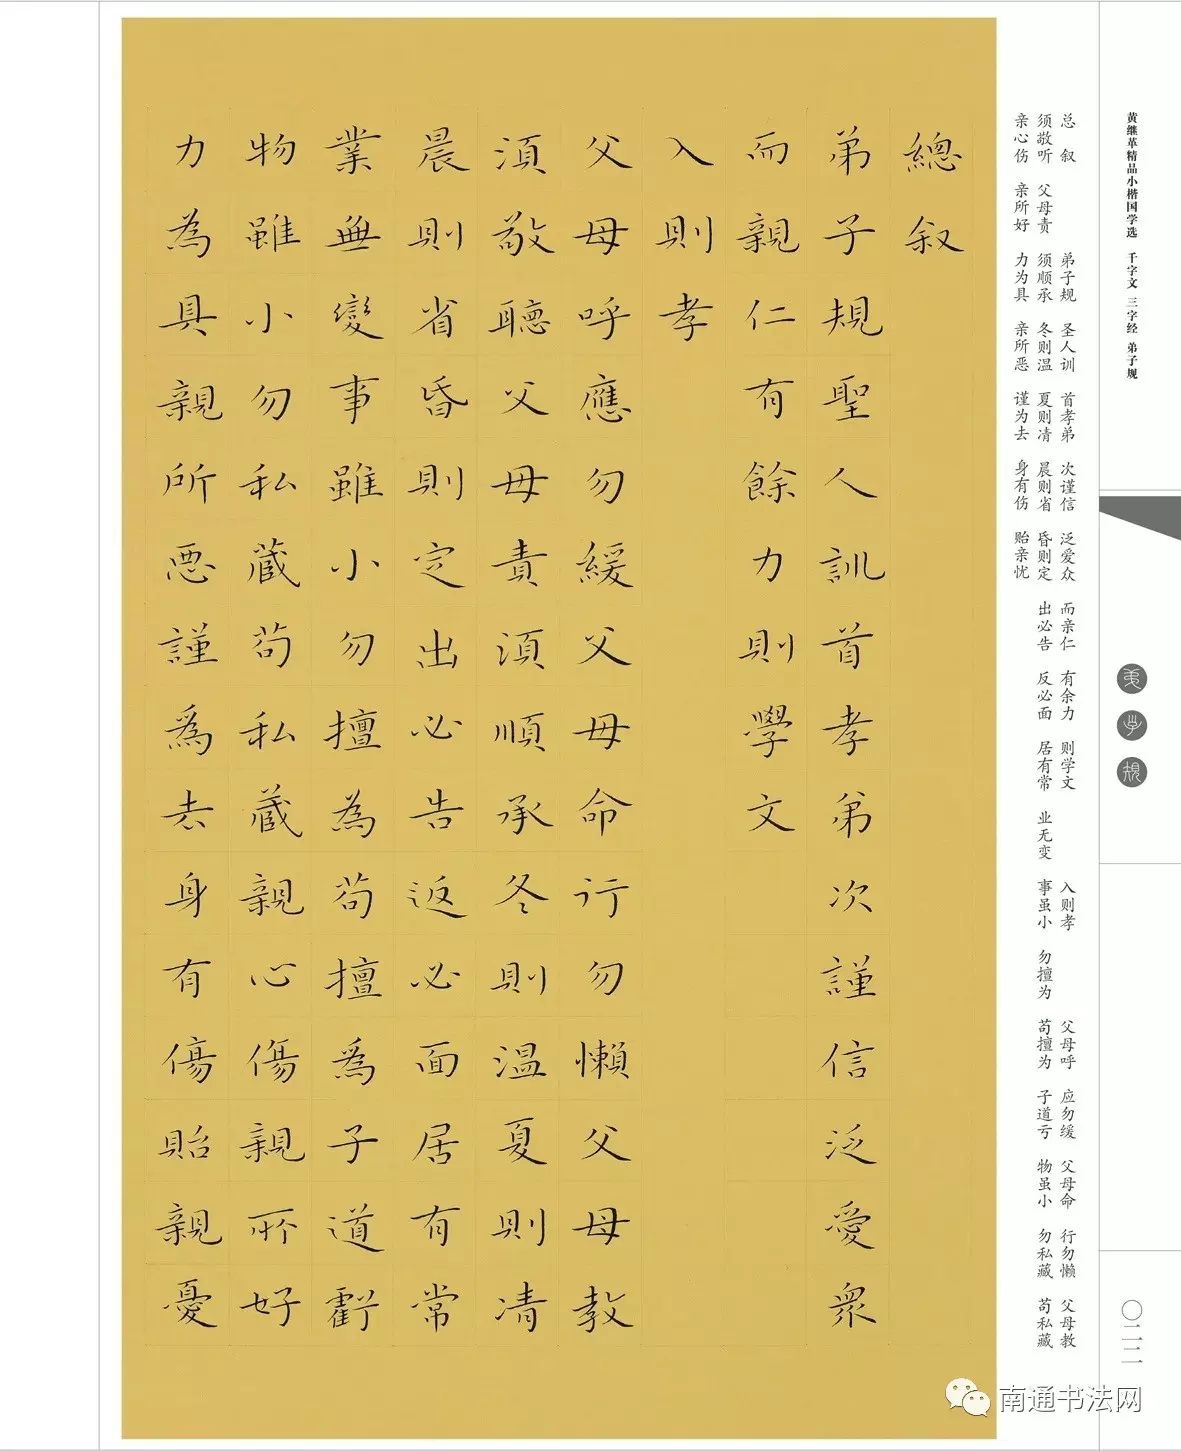 黄继革精品小楷国学选 千字文 三字经 弟子规
弟子規
〇二二
总叙 弟子规 圣人训 首孝弟 次谨信 泛爱众 而亲仁 有余力 则学文 入则孝 父母呼 应勿缓 父母命 行勿懒 父母教
须敬听 父母责 须顺承 冬则温 夏则凊 晨则省 昏则定 出必告 反必面 居有常 业无变 事虽小 勿擅为 苟擅为 子道亏 物虽小 勿私藏 苟私藏
亲心伤 亲所好 力为具 亲所恶 谨为去 身有伤 贻亲忧
總叙
弟子規聖人訓首孝弟次謹信泛愛衆
而親仁有餘力則學文
入則孝
父母呼應勿緩父母命行勿懶父母教
須敬聽父母責須順承冬則温夏則凊
晨則省昏則定出必告返必面居有常
業無變事雖小勿擅為苟擅爲子道虧
物雖小勿私藏苟私藏親心傷親所好
力為具親所惡謹爲去身有傷貽親憂
南通书法网